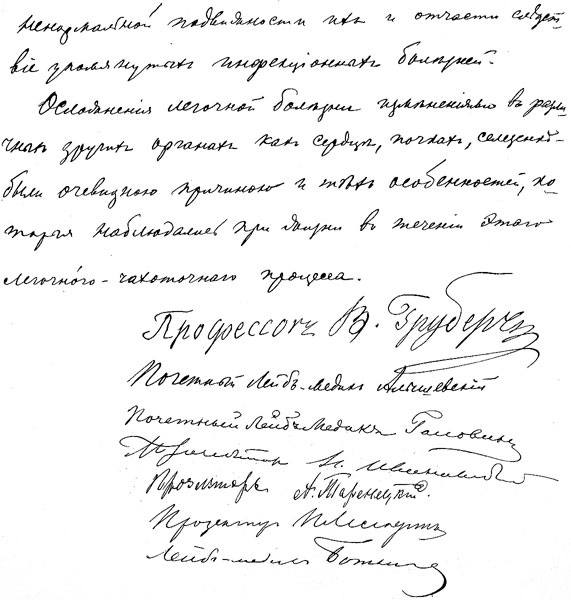 ненормальной подвижности ихъ и отчасти слѣдст-
віе упомянутыхъ инфекціонныхъ болѣзней.
Осложненія легочной болѣзни измѣненіями въ разли
чныхъ другихъ органахъ какъ сердцѣ, почкахъ, селезенкѣ-
были очевидною причиною и тѣхъ особенностей, ко-
торыя наблюдались при жизни въ теченіи этого
легочного-чахоточнаго процесса.
Профессоръ В. Груберъ
Почетный Лейбъ-медикъ Алышевскій
Почетный Лейбъ Медикъ Головинъ
Прозекторъ А. Таренецкій.
Прозекторъ
Лейбъ-медикъ Боткинъ